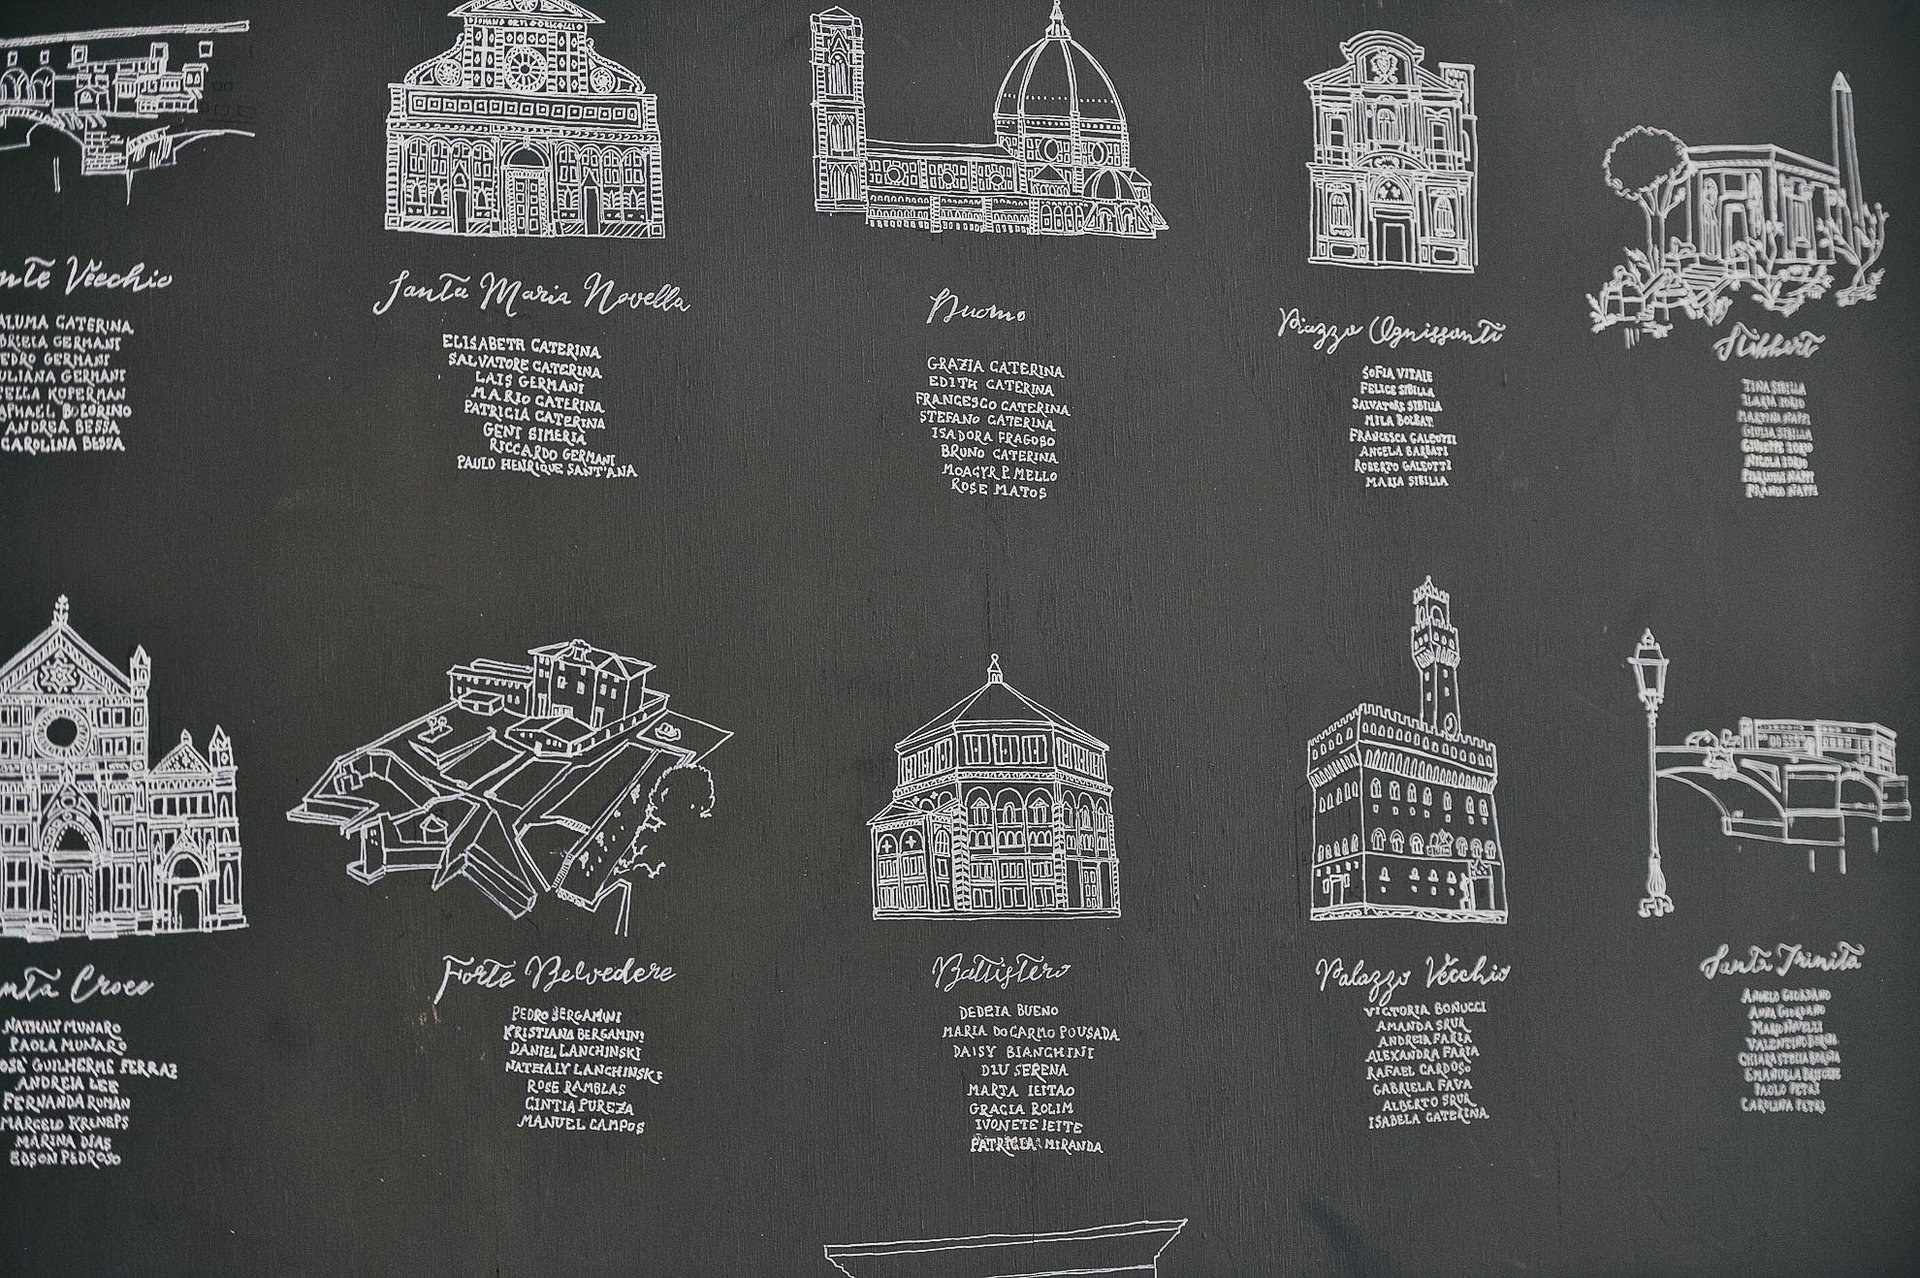 nte Vecchio
ALUMA CATERINA
BRIELA GERMANI
EDRO GERMANI
ULIANA GERMANI
KOPERMAN
APHAEL BOLORINO
ANDREA BESSA
CAROLINA BESSA
Santa Maria Novella
ELISABETH CATERINA
SALVATORE CATERINA
LAIS GERMANI
MARIO CATERINA
PATRICIA CATERINA
GENT SIMERIA
RICCARDO GERMANI
PAULO HENRIQUE SANT'ANA
Duomo
GRAZIA CATERINA
EDITH CATERINA
FRANCESCO CATERINA
STEFANO CATERINA
ISADORA FRAGOSO
BRUNO CATERINA
MOACYR P. MELLO
ROSE MATOS
Piazza Ognissanti
SOFIA VITALE
FELICE SIBILLA
SALVATORE SIBILLA
MILA
FRANCESCA GALEOTTI
ANGELA BARBATI
ROBERTO GALEOTTI
MARIA SIBILLA
Stibbert
TINA SIBILLA
ILARIA IORIO
MARTINA NAPPI
GIULIA SIBILLA
GIUSEPPE IORIO
NICOLA IORIO
NAPPI
FRANCO NAPPI
nta Croce
NATHALY MUNARO
PAOLA MUNARO
OSÈ GUILHERME FERRAZ
ANDREIA LEE
FERNANDA ROMAN
MARCELO KRENEPS
MARINA DIAS
EDSON PEDROSO
Forte Belvedere
PEDRO BERGAMINI
KRISTIANA BERGAMINI
DANIEL LANCHINSKI
NATHALY LANCHINSKI
ROSE RAMBLAS
CINTIA PUREZA
MANUEL CAMPOS
Battistero
DEDEIA BUENO
MARIA DO CARMO POUSADA
DAISY BIANCHINI
DZU SERENA
MARTA LEITAO
GRACIA ROLIM
IVONETE LEITE
PATRICIA MIRANDA
Palazzo Vecchio
VICTORIA BONUCCI
AMANDA SRUR
ANDREIA FARIA
ALEXANDRA FARIA
RAFAEL CARDOSO
GABRIELA FAVA
ALBERTO SRUR
ISABELA CATERINA
Santa Trinita
ANGELO GIORDANO
ANNA GIORDANO
MARIO NOVELLI
VALENTINO BORGIA
CHIARASTELLA BORGIA
EMANUELA
PAOLO PETRI
CAROLINA PETRI